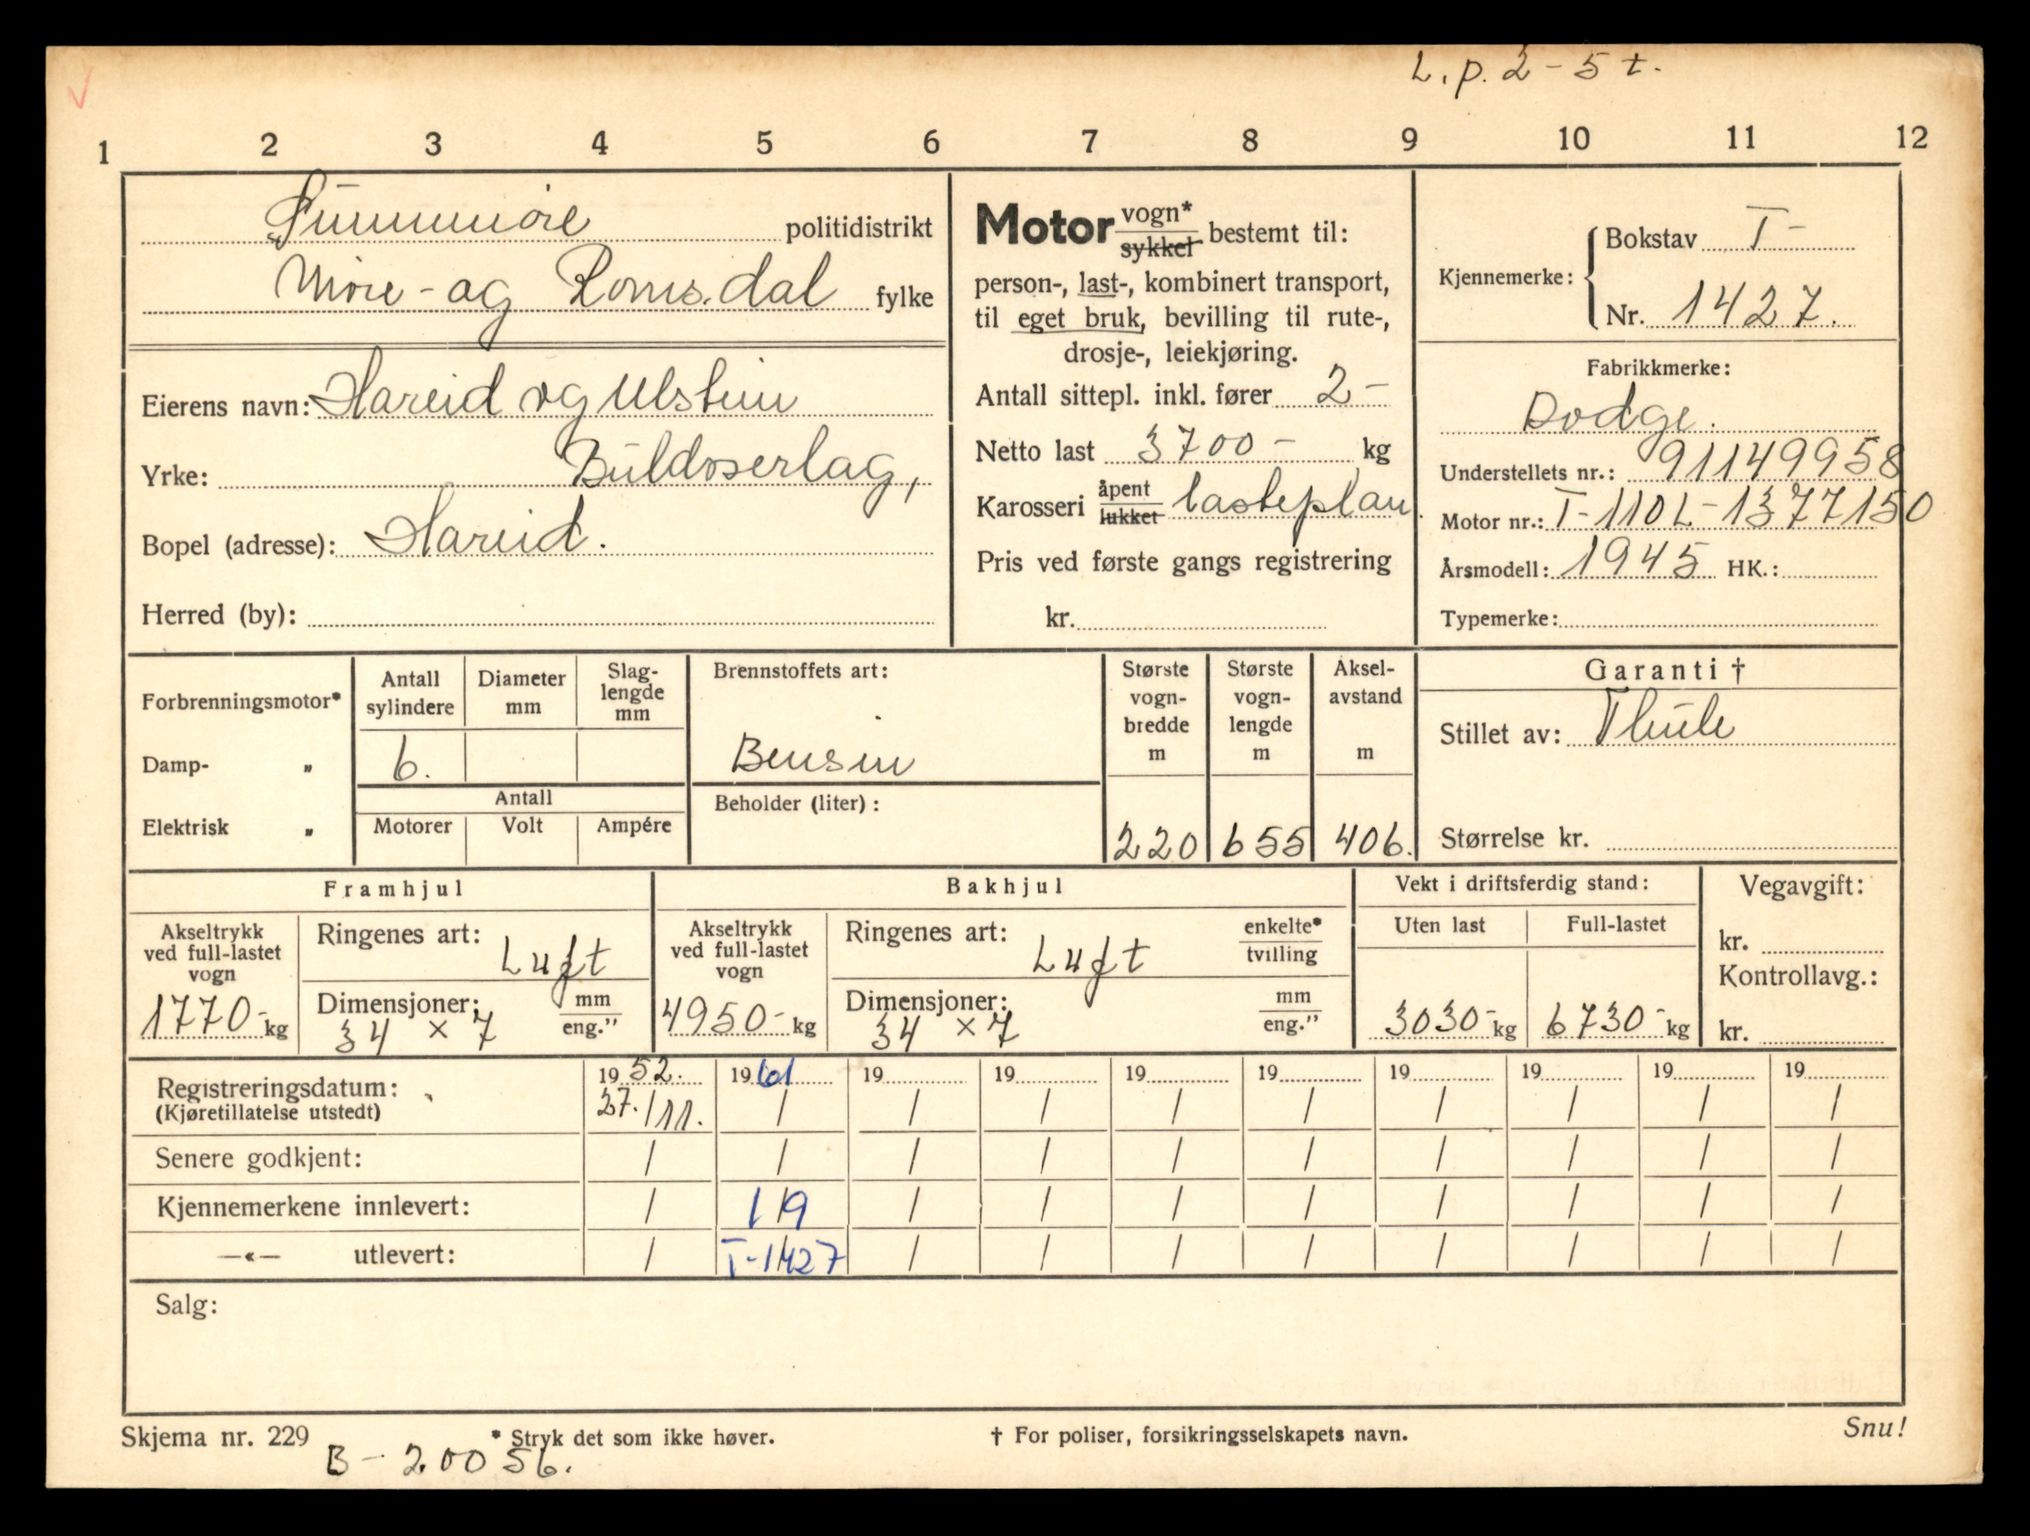 L.p. 2 - 5 t.
1 2 3 4 5 6 7 8 9 10 11 12
Sunnmöre politidistrikt
Möre - og Romsdal fylke
Eierens navn: Hareid og Ulstein
Yrke: Buldoserlag,
Bopel (adresse): Hareid.
Herred (by):
Motor vogn* / sykkel bestemt til:
person-, last-, kombinert transport,
til eget bruk, bevilling til rute-,
drosje-, leiekjøring.
Antall sittepl. inkl. fører 2 -
Netto last 3700 - kg
Karosseri åpent / lukket lasteplan.
Pris ved første gangs registrering
kr.
Kjennemerke: Bokstav T -
Nr. 1427.
Fabrikkmerke:
Dodge.
Understellets nr.: 91149958
Motor nr.: T-110L-1377150
Årsmodell: 1945 HK.:
Typemerke:
Forbrenningsmotor*
Damp- „
Elektrisk „
Antall sylindere
Diameter mm
Slaglengde mm
6.
Antall
Motorer Volt Ampére
Brennstoffets art:
Bensin
Beholder (liter):
Største vognbredde m
Største vognlengde m
Akselavstand m
220 655 406.
Garanti †
Stillet av: Thule
Størrelse kr.
Framhjul
Akseltrykk ved full-lastet vogn
1770- kg
Ringenes art: Luft
Dimensjoner: mm / eng."
34 x 7
Bakhjul
Akseltrykk ved full-lastet vogn
4950- kg
Ringenes art: Luft enkelte* / tvilling
Dimensjoner: mm / eng."
34 x 7
Vekt i driftsferdig stand:
Uten last Full-lastet
3030- kg 6730- kg
Vegavgift:
kr.
Kontrollavg.:
kr.
Registreringsdatum: 1952. 1961 19 19 19 19 19 19 19 19
(Kjøretillatelse utstedt) 27./11. / / / / / / / / /
Senere godkjent: / / / / / / / / / /
Kjennemerkene innlevert: / 1/9 / / / / / / / /
—«— utlevert: / T-1427 / / / / / / / /
Salg:
Skjema nr. 229
* Stryk det som ikke høver.
† For poliser, forsikringsselskapets navn.
Snu!
B - 20056.